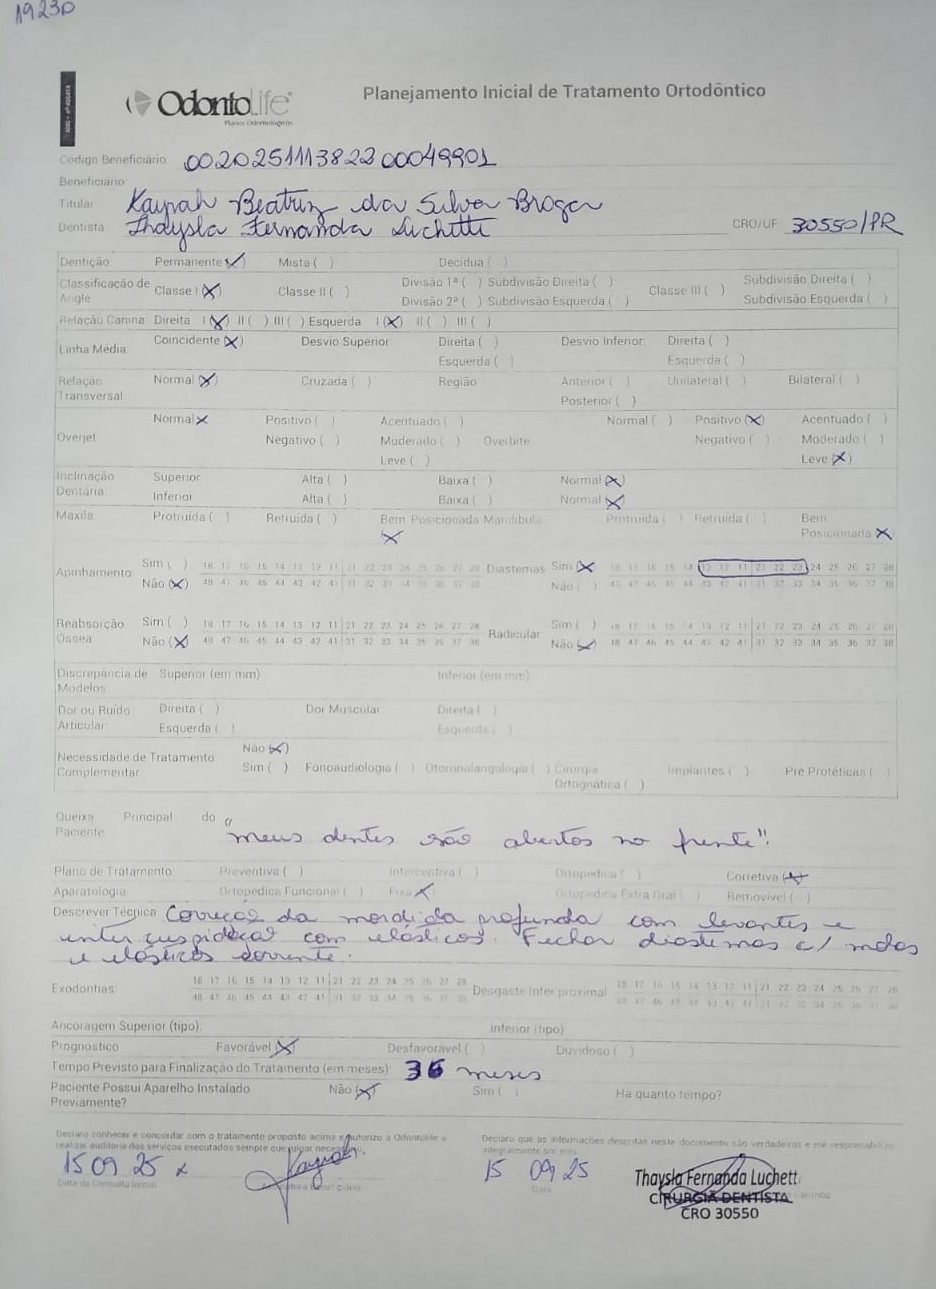 19230
OdontoLife
Planos Odontológicos
Planejamento Inicial de Tratamento Ortodôntico
Código Beneficiário: 002025111382200049901
Beneficiário:
Titular Kayrah Beatriz da Silva Braga
Dentista Thaysla Fernanda Luchetti CRO/UF: 30550/PR
Dentição Permanente (X) Mista ( ) Decídua ( )
Classificação de Angle Classe I (X) Classe II ( ) Divisão 1ª ( ) Subdivisão Direita ( ) Classe III ( ) Subdivisão Direita ( )
Divisão 2ª ( ) Subdivisão Esquerda ( ) Subdivisão Esquerda ( )
Relação Canina: Direita I (X) II ( ) III ( ) Esquerda I (X) II ( ) III ( )
Linha Média: Coincidente (X) Desvio Superior: Direita ( ) Desvio Inferior: Direita ( )
Esquerda ( ) Esquerda ( )
Relação Transversal Normal (X) Cruzada ( ) Região Anterior ( ) Unilateral ( ) Bilateral ( )
Posterior ( )
Overjet: Normal X Positivo ( ) Acentuado ( ) Normal ( ) Positivo (X) Acentuado ( )
Negativo ( ) Moderado ( ) Overbite Negativo ( ) Moderado ( )
Leve ( ) Leve (X)
Inclinação Dentária: Superior Alta ( ) Baixa ( ) Normal (X)
Inferior Alta ( ) Baixa ( ) Normal (X)
Maxila Protruída ( ) Retruída ( ) Bem Posicionada X Mandíbula Protruída ( ) Retruída ( ) Bem Posicionada X
Apinhamento Sim ( ) 18 17 16 15 14 13 12 11 21 22 23 24 25 26 27 28 Diastemas Sim (X) 18 17 16 15 14 13 12 11 21 22 23 24 25 26 27 28
Não (X) 48 47 46 45 44 43 42 41 31 32 33 34 35 36 37 38 Não ( ) 48 47 46 45 44 43 42 41 31 32 33 34 35 36 37 38
Reabsorção Óssea Sim ( ) 18 17 16 15 14 13 12 11 21 22 23 24 25 26 27 28 Radicular Sim ( ) 18 17 16 15 14 13 12 11 21 22 23 24 25 26 27 28
Não (X) 48 47 46 45 44 43 42 41 31 32 33 34 35 36 37 38 Não (X) 48 47 46 45 44 43 42 41 31 32 33 34 35 36 37 38
Discrepância de Modelos Superior (em mm) Inferior (em mm)
Dor ou Ruído Articular: Direita ( ) Dor Muscular Direita ( )
Esquerda ( ) Esquerda ( )
Necessidade de Tratamento Complementar Não (X)
Sim ( ) Fonoaudiologia ( ) Otorrinolangologia ( ) Cirurgia Ortognática ( ) Implantes ( ) Pré Protéticas ( )
Queixa Principal do Paciente: "meus dentes são abertos na frente"!
Plano de Tratamento Preventiva ( ) Interceptiva ( ) Ortopédica ( ) Corretiva (X)
Aparatologia Ortopédica Funcional ( ) Fixa X Ortopédica Extra Oral ( ) Removível ( )
Descrever Técnica Correção da mordida profunda com levantes e
intercuspidação com elásticos. Fechar diastemas c/ molas
e elásticos corrente.
Exodontias: 18 17 16 15 14 13 12 11 21 22 23 24 25 26 27 28 Desgaste Inter proximal 18 17 16 15 14 13 12 11 21 22 23 24 25 26 27 28
48 47 46 45 44 43 42 41 31 32 33 34 35 36 37 38 48 47 46 45 44 43 42 41 31 32 33 34 35 36 37 38
Ancoragem Superior (tipo): Inferior (tipo)
Prognóstico Favorável (X) Desfavorável ( ) Duvidoso ( )
Tempo Previsto para Finalização do Tratamento (em meses) 36 meses
Paciente Possui Aparelho Instalado Previamente? Não (X) Sim ( ) Há quanto tempo?
Declaro conhecer e concordar com o tratamento proposto acima e autorizo a Odontolife a
realizar auditoria dos serviços executados sempre que julgar necessário.
Declaro que as informações descritas neste documento são verdadeiras e me responsabilizo
integralmente por elas.
15 09 25 x
Data da Consulta Inicial
Assinatura Beneficiário
15 09 25
Data
Thaysla Fernanda Luchetti
CIRURGIÃ DENTISTA
CRO 30550